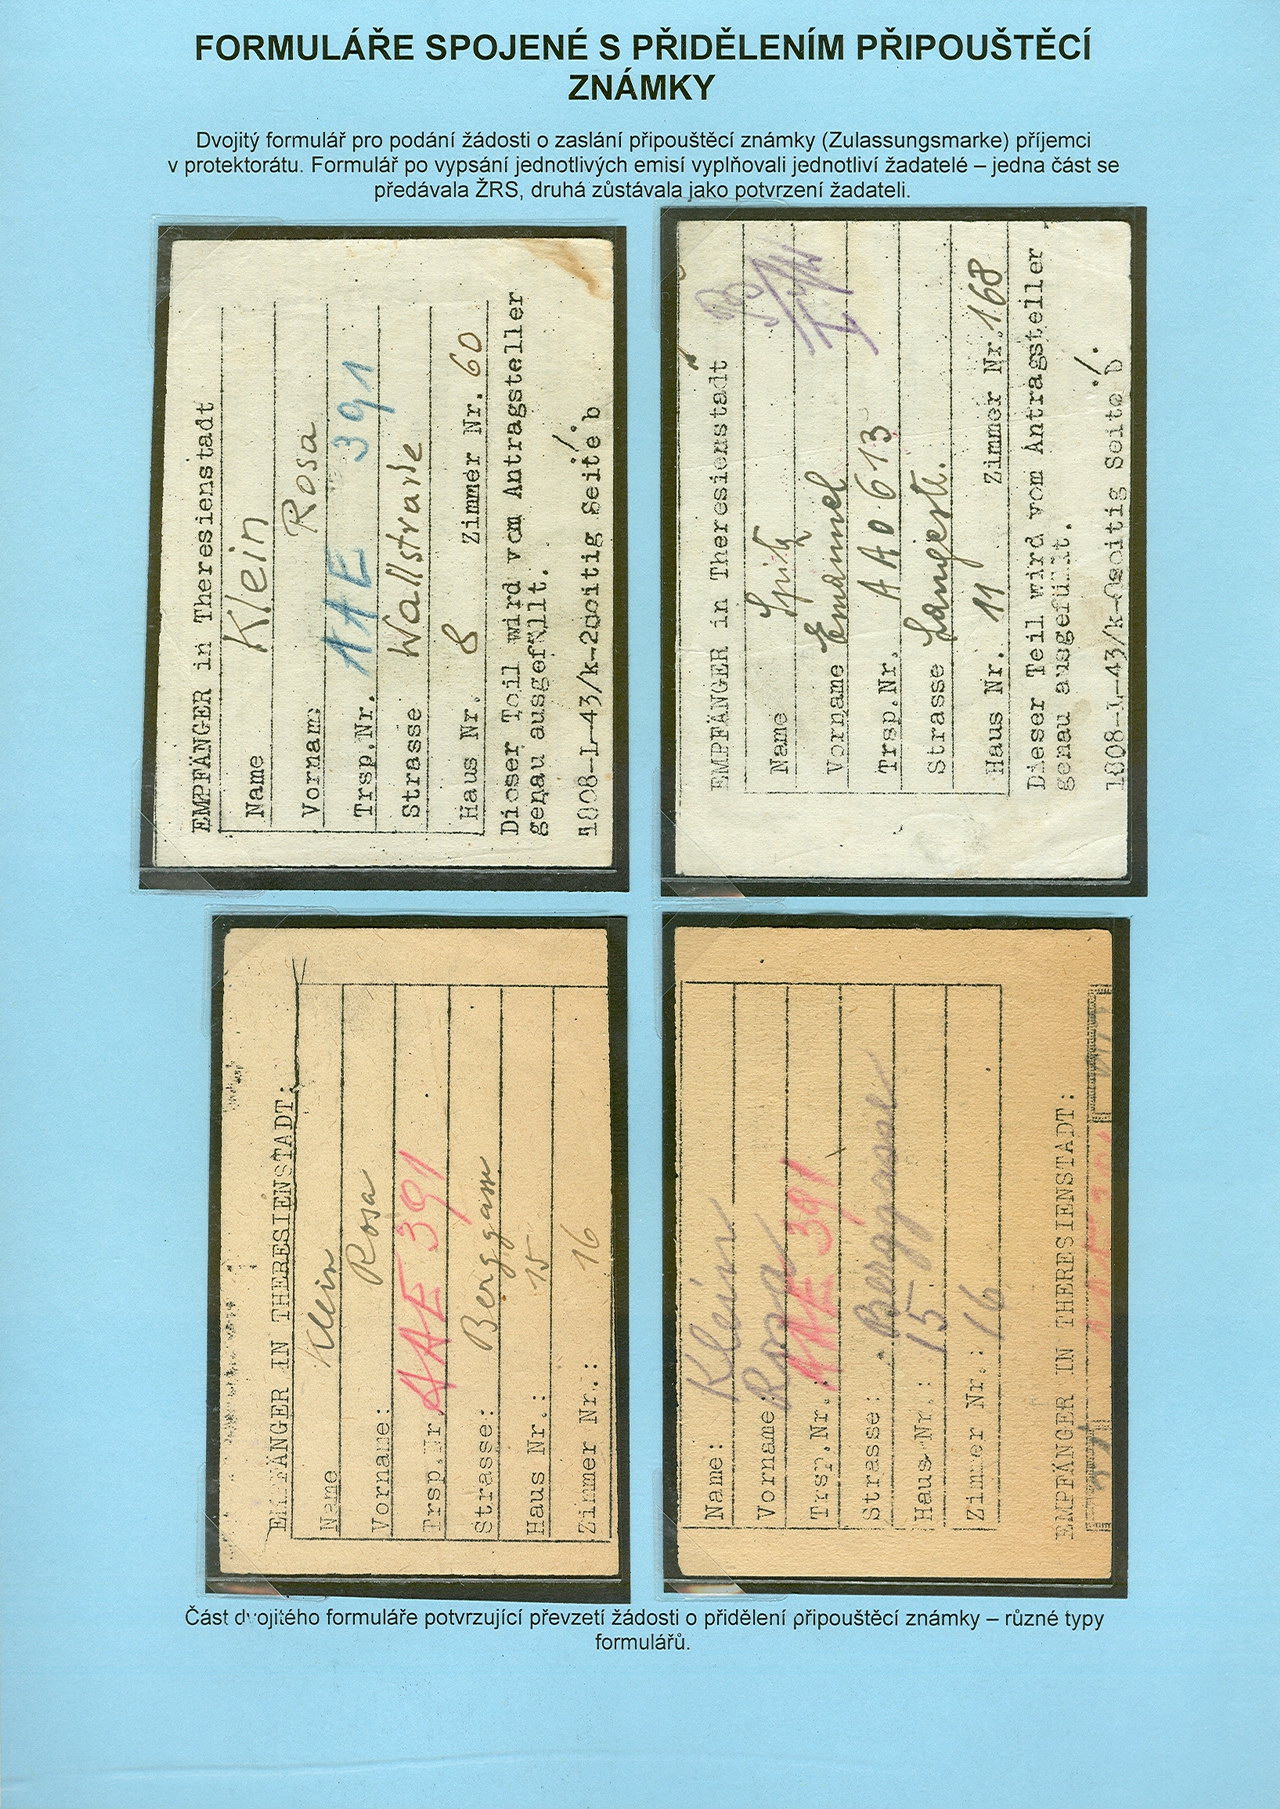 FORMULÁŘE SPOJENÉ S PŘIDĚLENÍM PŘIPOUŠTĚCÍ
ZNÁMKY
Dvojitý formulář pro podání žádosti o zaslání připouštěcí známky (Zulassungsmarke) příjemci
v protektorátu. Formulář po vypsání jednotlivých emisí vyplňovali jednotliví žadatelé – jedna část se
předávala ŽRS, druhá zůstávala jako potvrzení žadateli.
EMPFÄNGER in Theresienstadt
Name Klein
Vorname Rosa
Trsp.Nr. AAE 391
Strasse Wallstraße
Haus Nr. 8 Zimmer Nr. 60
Dieser Teil wird vom Antragsteller
genau ausgefüllt.
1808-L-43/k-2seitig Seite b
EMPFÄNGER in Theresienstadt
Name Spitz
Vorname Emanuel
Trsp.Nr. AAo 613
Strasse Langestr.
Haus Nr. 11 Zimmer Nr. 168
Dieser Teil wird vom Antragsteller
genau ausgefüllt.
1808-L-43/k- Seite b
EMPFÄNGER IN THERESIENSTADT:
Name Klein
Vorname: Rosa
Trsp.Nr AAE 391
Strasse: Berggasse
Haus Nr.: 15
Zimmer Nr.: 16
Name: Klein
Vorname: Rosa
Trsp.Nr.: AAE 391
Strasse: Berggasse
Haus Nr.: 15
Zimmer Nr.: 16
EMPFÄNGER IN THERESIENSTADT:
Část dvojitého formuláře potvrzující převzetí žádosti o přidělení připouštěcí známky – různé typy
formulářů.